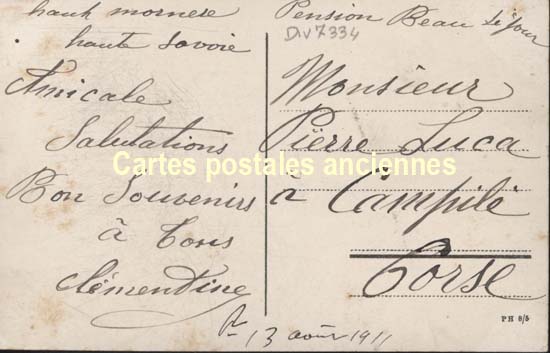 hauk mornese
haute Savoie
Amicale
Salutations
Bon Souvenirs
à Tous
Clémentine
Pension Beau Séjour
Div7334
Monsieur
Pierre Luca
à Campile
Corse
13 août 1911
PH 8/5
Cartes postales anciennes